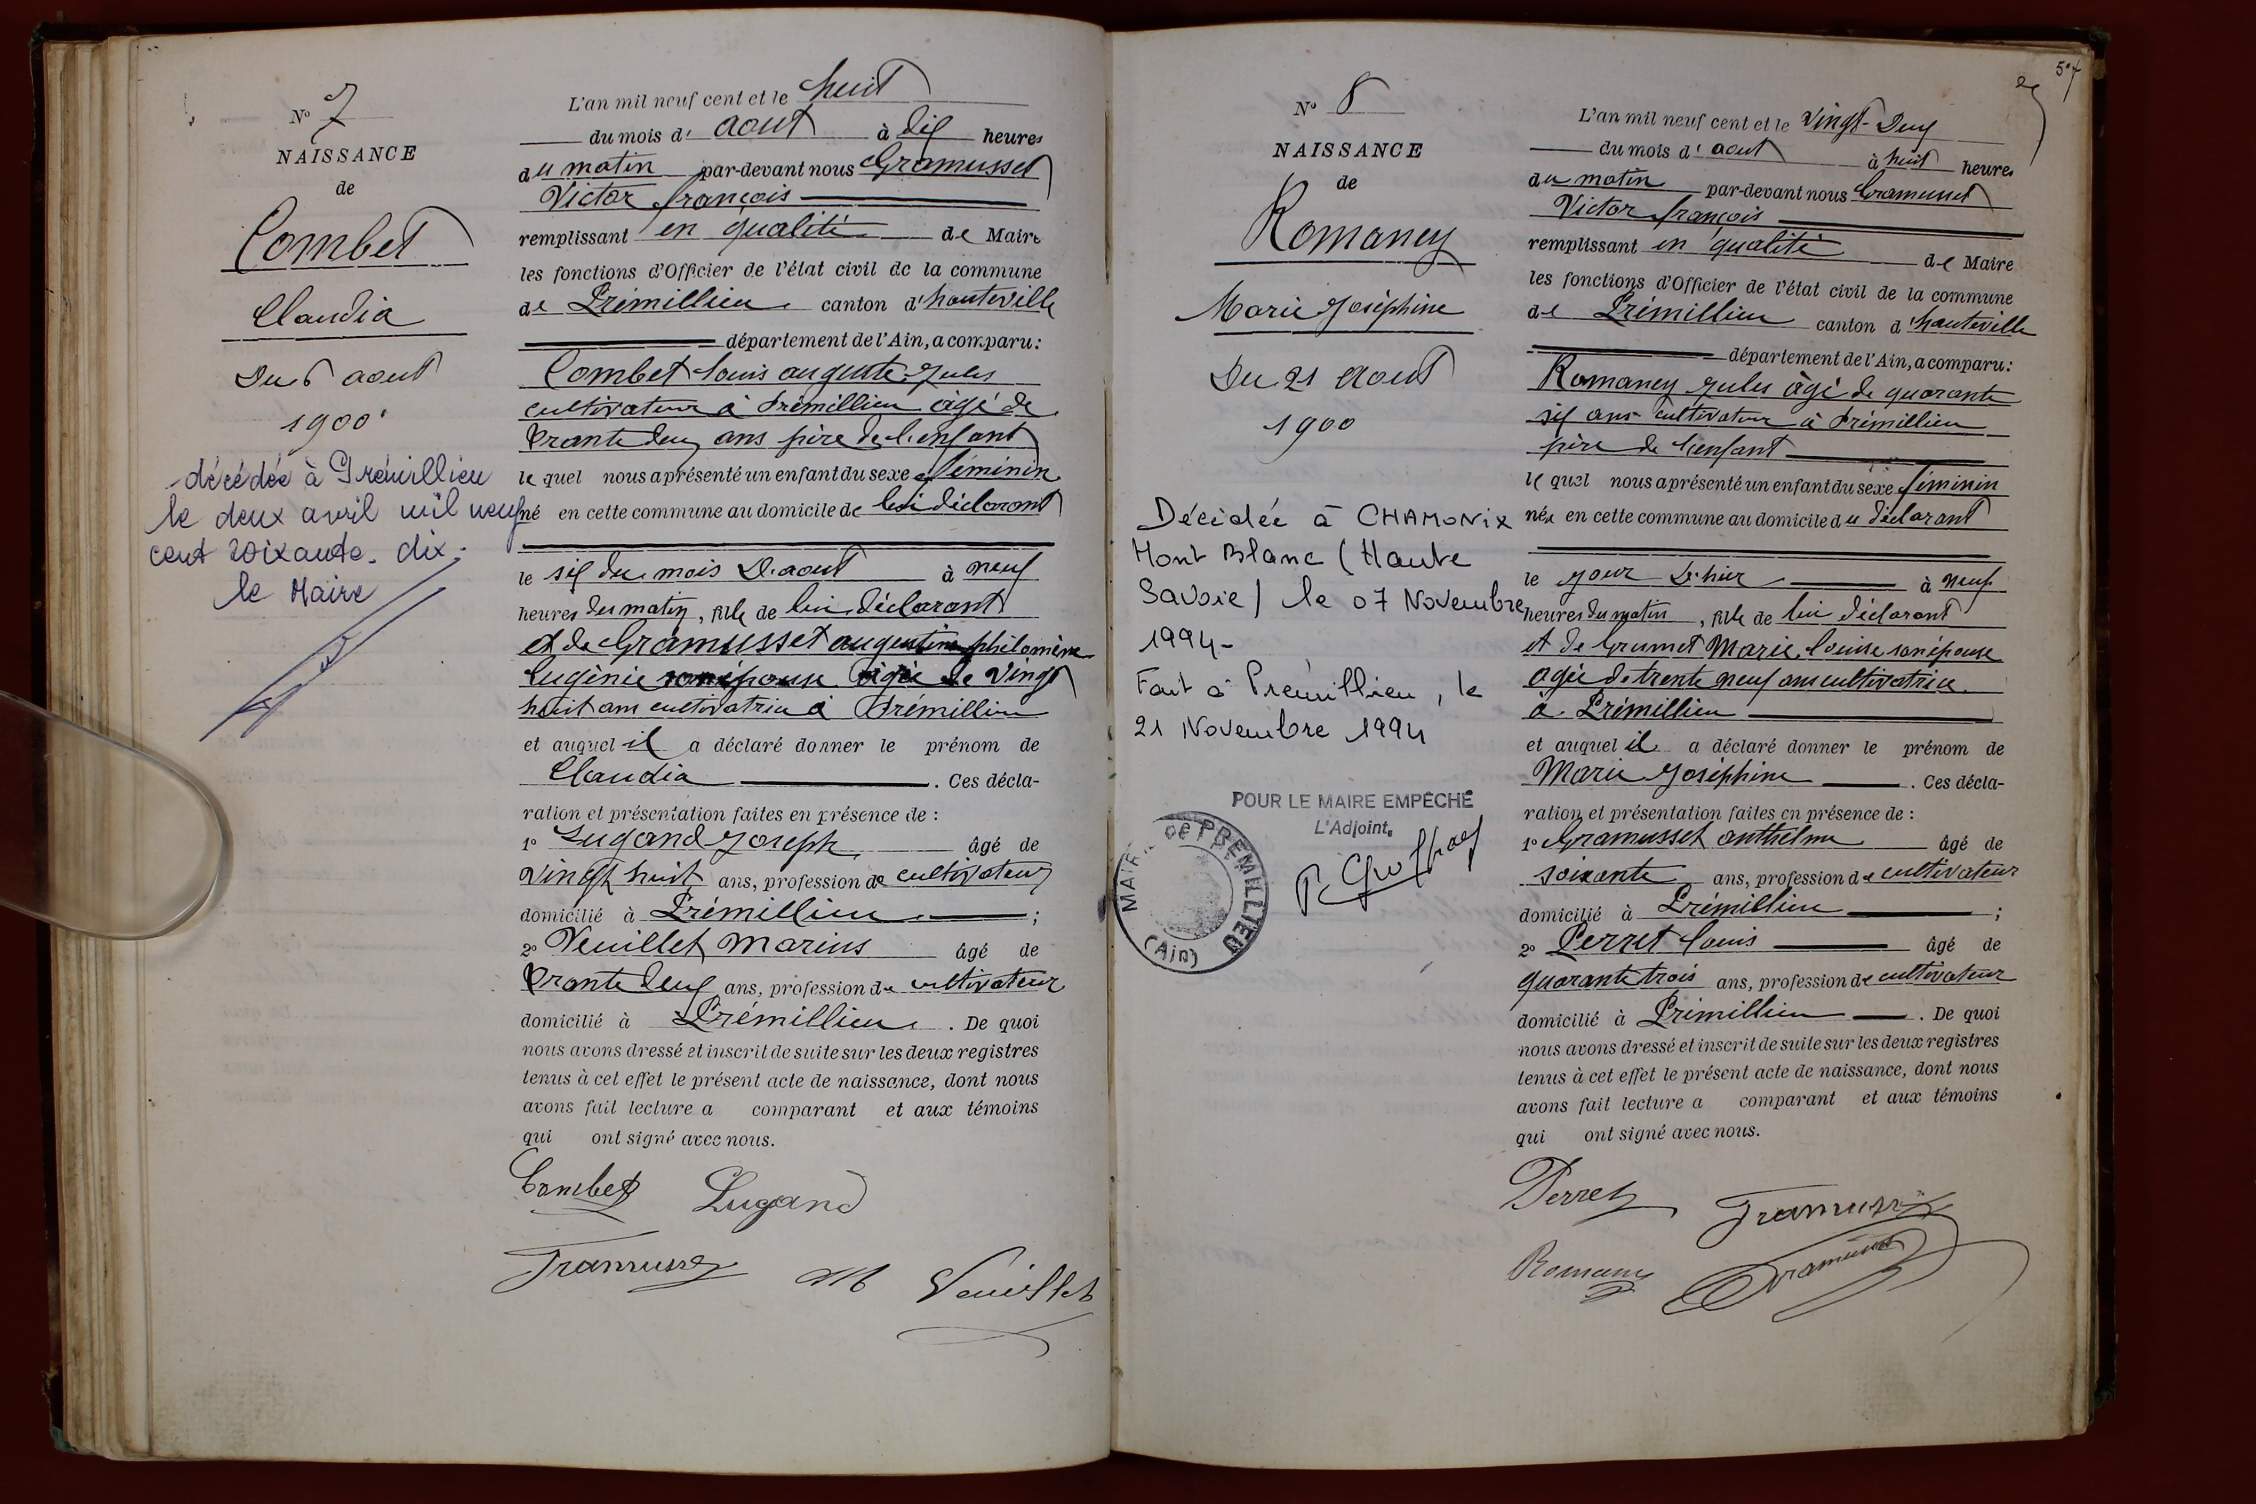 N° 7
NAISSANCE
de
Combet
Claudia
Du 6 aout
1900
décédée à Prémillieu
le deux avril mil neuf
cent soixante-dix.
le Maire
L'an mil neuf cent et le huit
du mois d'aout à dix heures
du matin par-devant nous Gramusset
Victor françois
remplissant en qualité de Maire
les fonctions d'Officier de l'état civil de la commune
de Prémillieu canton d'hauteville
département de l'Ain, a comparu:
Combet Louis auguste Jules
cultivateur à Prémillieu âgé de
trante deux ans père de l'enfant
le quel nous a présenté un enfant du sexe féminin
né en cette commune au domicile de lui déclarant
le six du mois d'aout à neuf
heures du matin, fille de lui déclarant
et de Gramusset augustine philomène
Eugénie son épouse âgée de vingt
huit ans cultivatrice à Prémillieu
et auquel il a déclaré donner le prénom de
Claudia. Ces décla-
ration et présentation faites en présence de :
1° Lugand Joseph âgé de
vingt huit ans, profession de cultivateur
domicilié à Prémillieu ;
2° Veuillet Marius âgé de
trante deux ans, profession de cultivateur
domicilié à Prémillieu. De quoi
nous avons dressé et inscrit de suite sur les deux registres
tenus à cet effet le présent acte de naissance, dont nous
avons fait lecture a comparant et aux témoins
qui ont signé avec nous.
Combet Lugand
Gramusset M Veuillet
57
N° 8
NAISSANCE
de
Romaney
Marie Joséphine
Du 21 Aout
1900
Décédée à CHAMONIX
Mont Blanc (Haute
Savoie) le 07 Novembre
1994-
Fait à Prémillieu, le
21 Novembre 1994
POUR LE MAIRE EMPÊCHÉ
L'Adjoint,
MAIRIE DE PREMILLIEU
(Ain)
L'an mil neuf cent et le vingt-Deux
du mois d'aout à huit heures
du matin par-devant nous Gramusset
Victor françois
remplissant en qualité de Maire
les fonctions d'Officier de l'état civil de la commune
de Prémillieu canton d'hauteville
département de l'Ain, a comparu:
Romaney Jules âgé de quarante
six ans cultivateur à Prémillieu
père de l'enfant
le quel nous a présenté un enfant du sexe féminin
née en cette commune au domicile du déclarant
le jour d'hier à neuf
heures du matin, fille de lui déclarant
et de Grumet Marie Louise son épouse
agée de trente neuf ans cultivatrice
à Prémillieu
et auquel il a déclaré donner le prénom de
Marie Joséphine. Ces décla-
ration et présentation faites en présence de :
1° Gramusset anthelme âgé de
soixante ans, profession de cultivateur
domicilié à Prémillieu ;
2° Perret Louis âgé de
quarante trois ans, profession de cultivateur
domicilié à Prémillieu. De quoi
nous avons dressé et inscrit de suite sur les deux registres
tenus à cet effet le présent acte de naissance, dont nous
avons fait lecture a comparant et aux témoins
qui ont signé avec nous.
Perret Gramusset
Romaney Gramusset